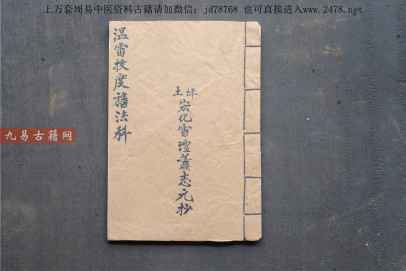 上万套周易中医资料古籍请加微信：jd78768 也可直接进入www.2478.net
温雷拔度禳法科
土坪
岩化雷坛萧志元抄
九易古籍网